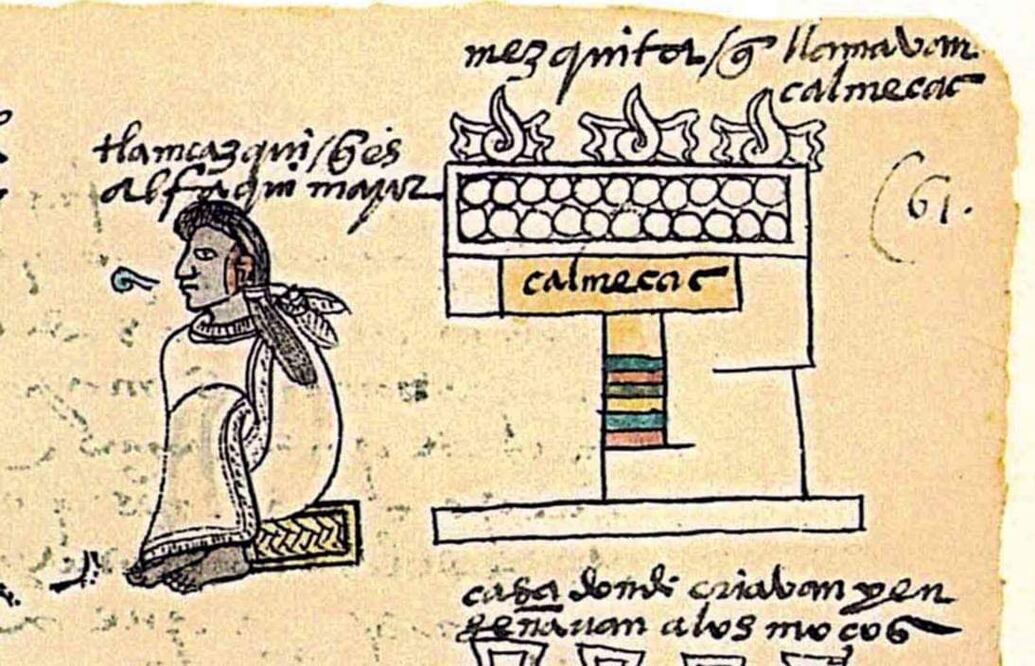 mezquita / q̃ llamavan
calmecac
tlamazqui / q̃ es
alfaqui mayor
(61.
calmecac
casa donde criavan y en
señavan a los moços